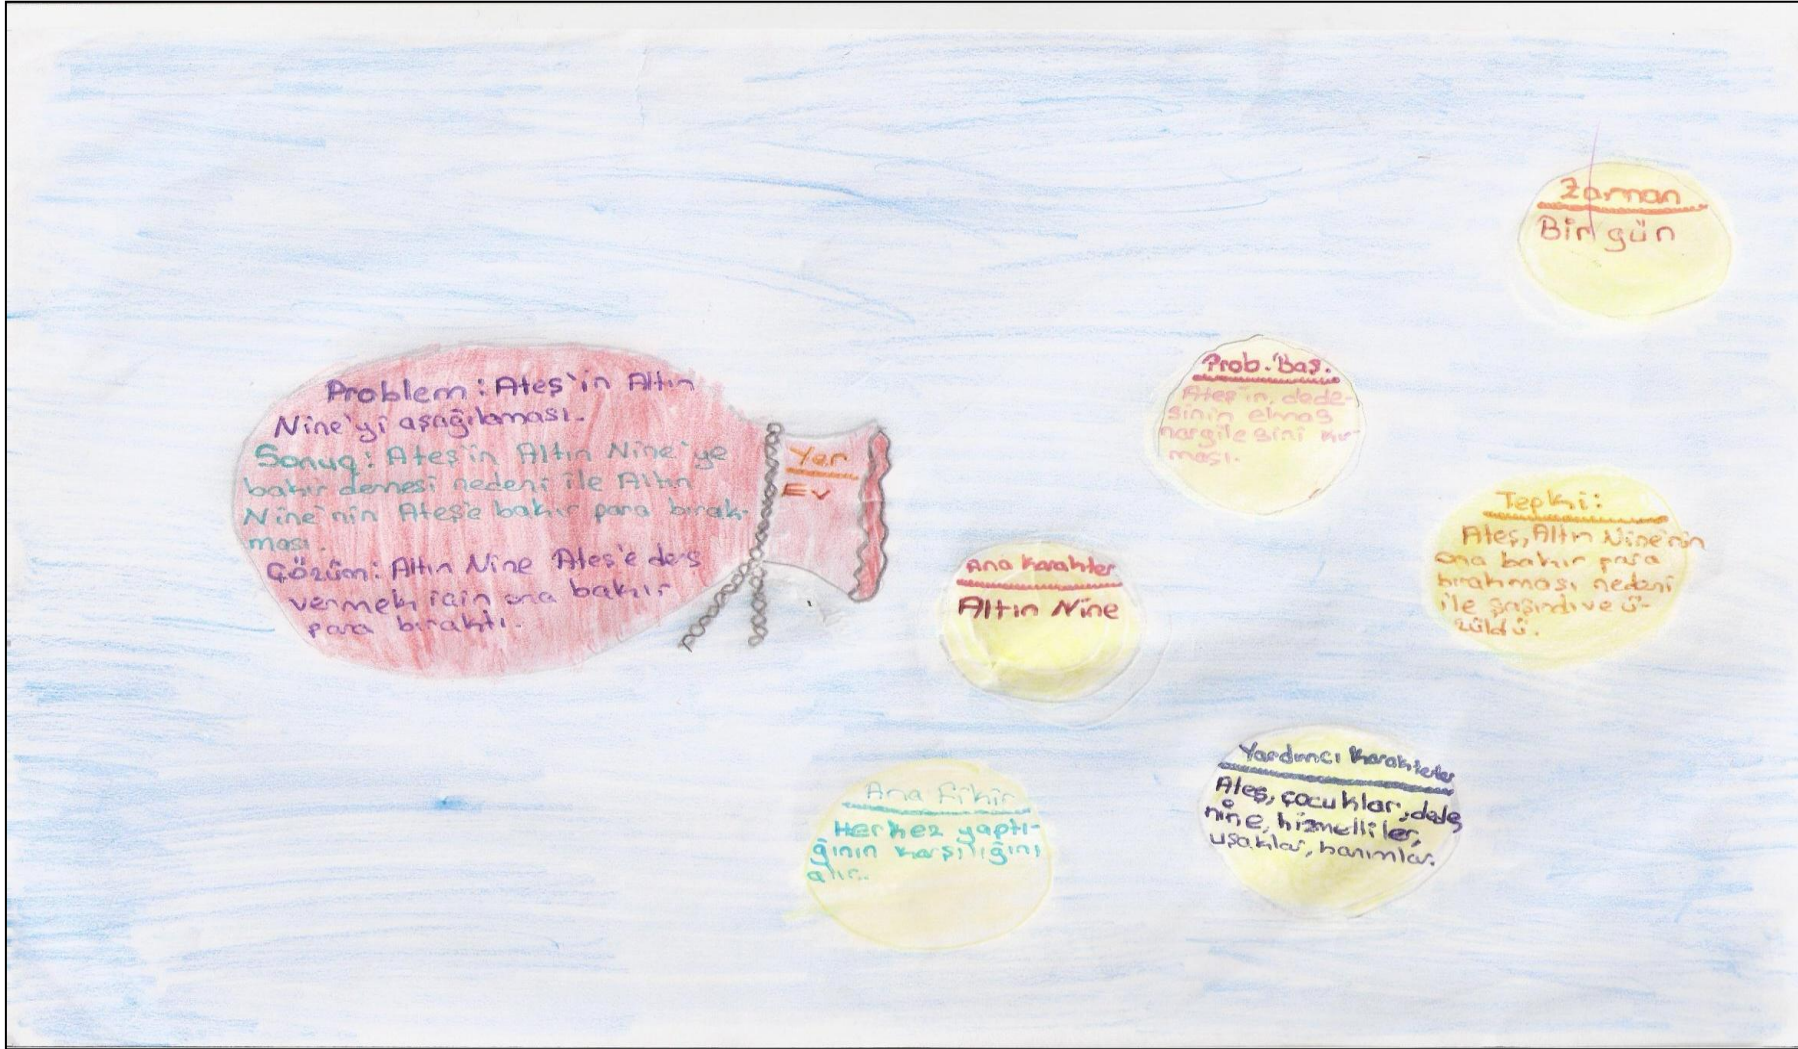 Problem : Ateş'in Altın
Nine'yi aşağılaması.
Sonuç: Ateş'in Altın Nine'ye
bakır demesi nedeni ile Altın
Nine'nin Ateş'e bakır para bırak-
ması.
Çözüm: Altın Nine Ateş'e ders
vermek için ona bakır
para bıraktı.
Yer
Ev
Zaman
Bir gün
Prob. Baş.
Ateş'in, dede-
sinin elmas
nargilesini kır-
ması.
Tepki:
Ateş, Altın Nine'nin
ona bakır para
bırakması nedeni
ile şaşırdı ve ü-
züldü.
Ana karakter
Altın Nine
Ana fikir
Herkez yaptı-
ğının karşılığını
alır.
Yardımcı karakterler
Ateş, çocuklar, dede,
nine, hizmetliler,
uşaklar, hanımlar.